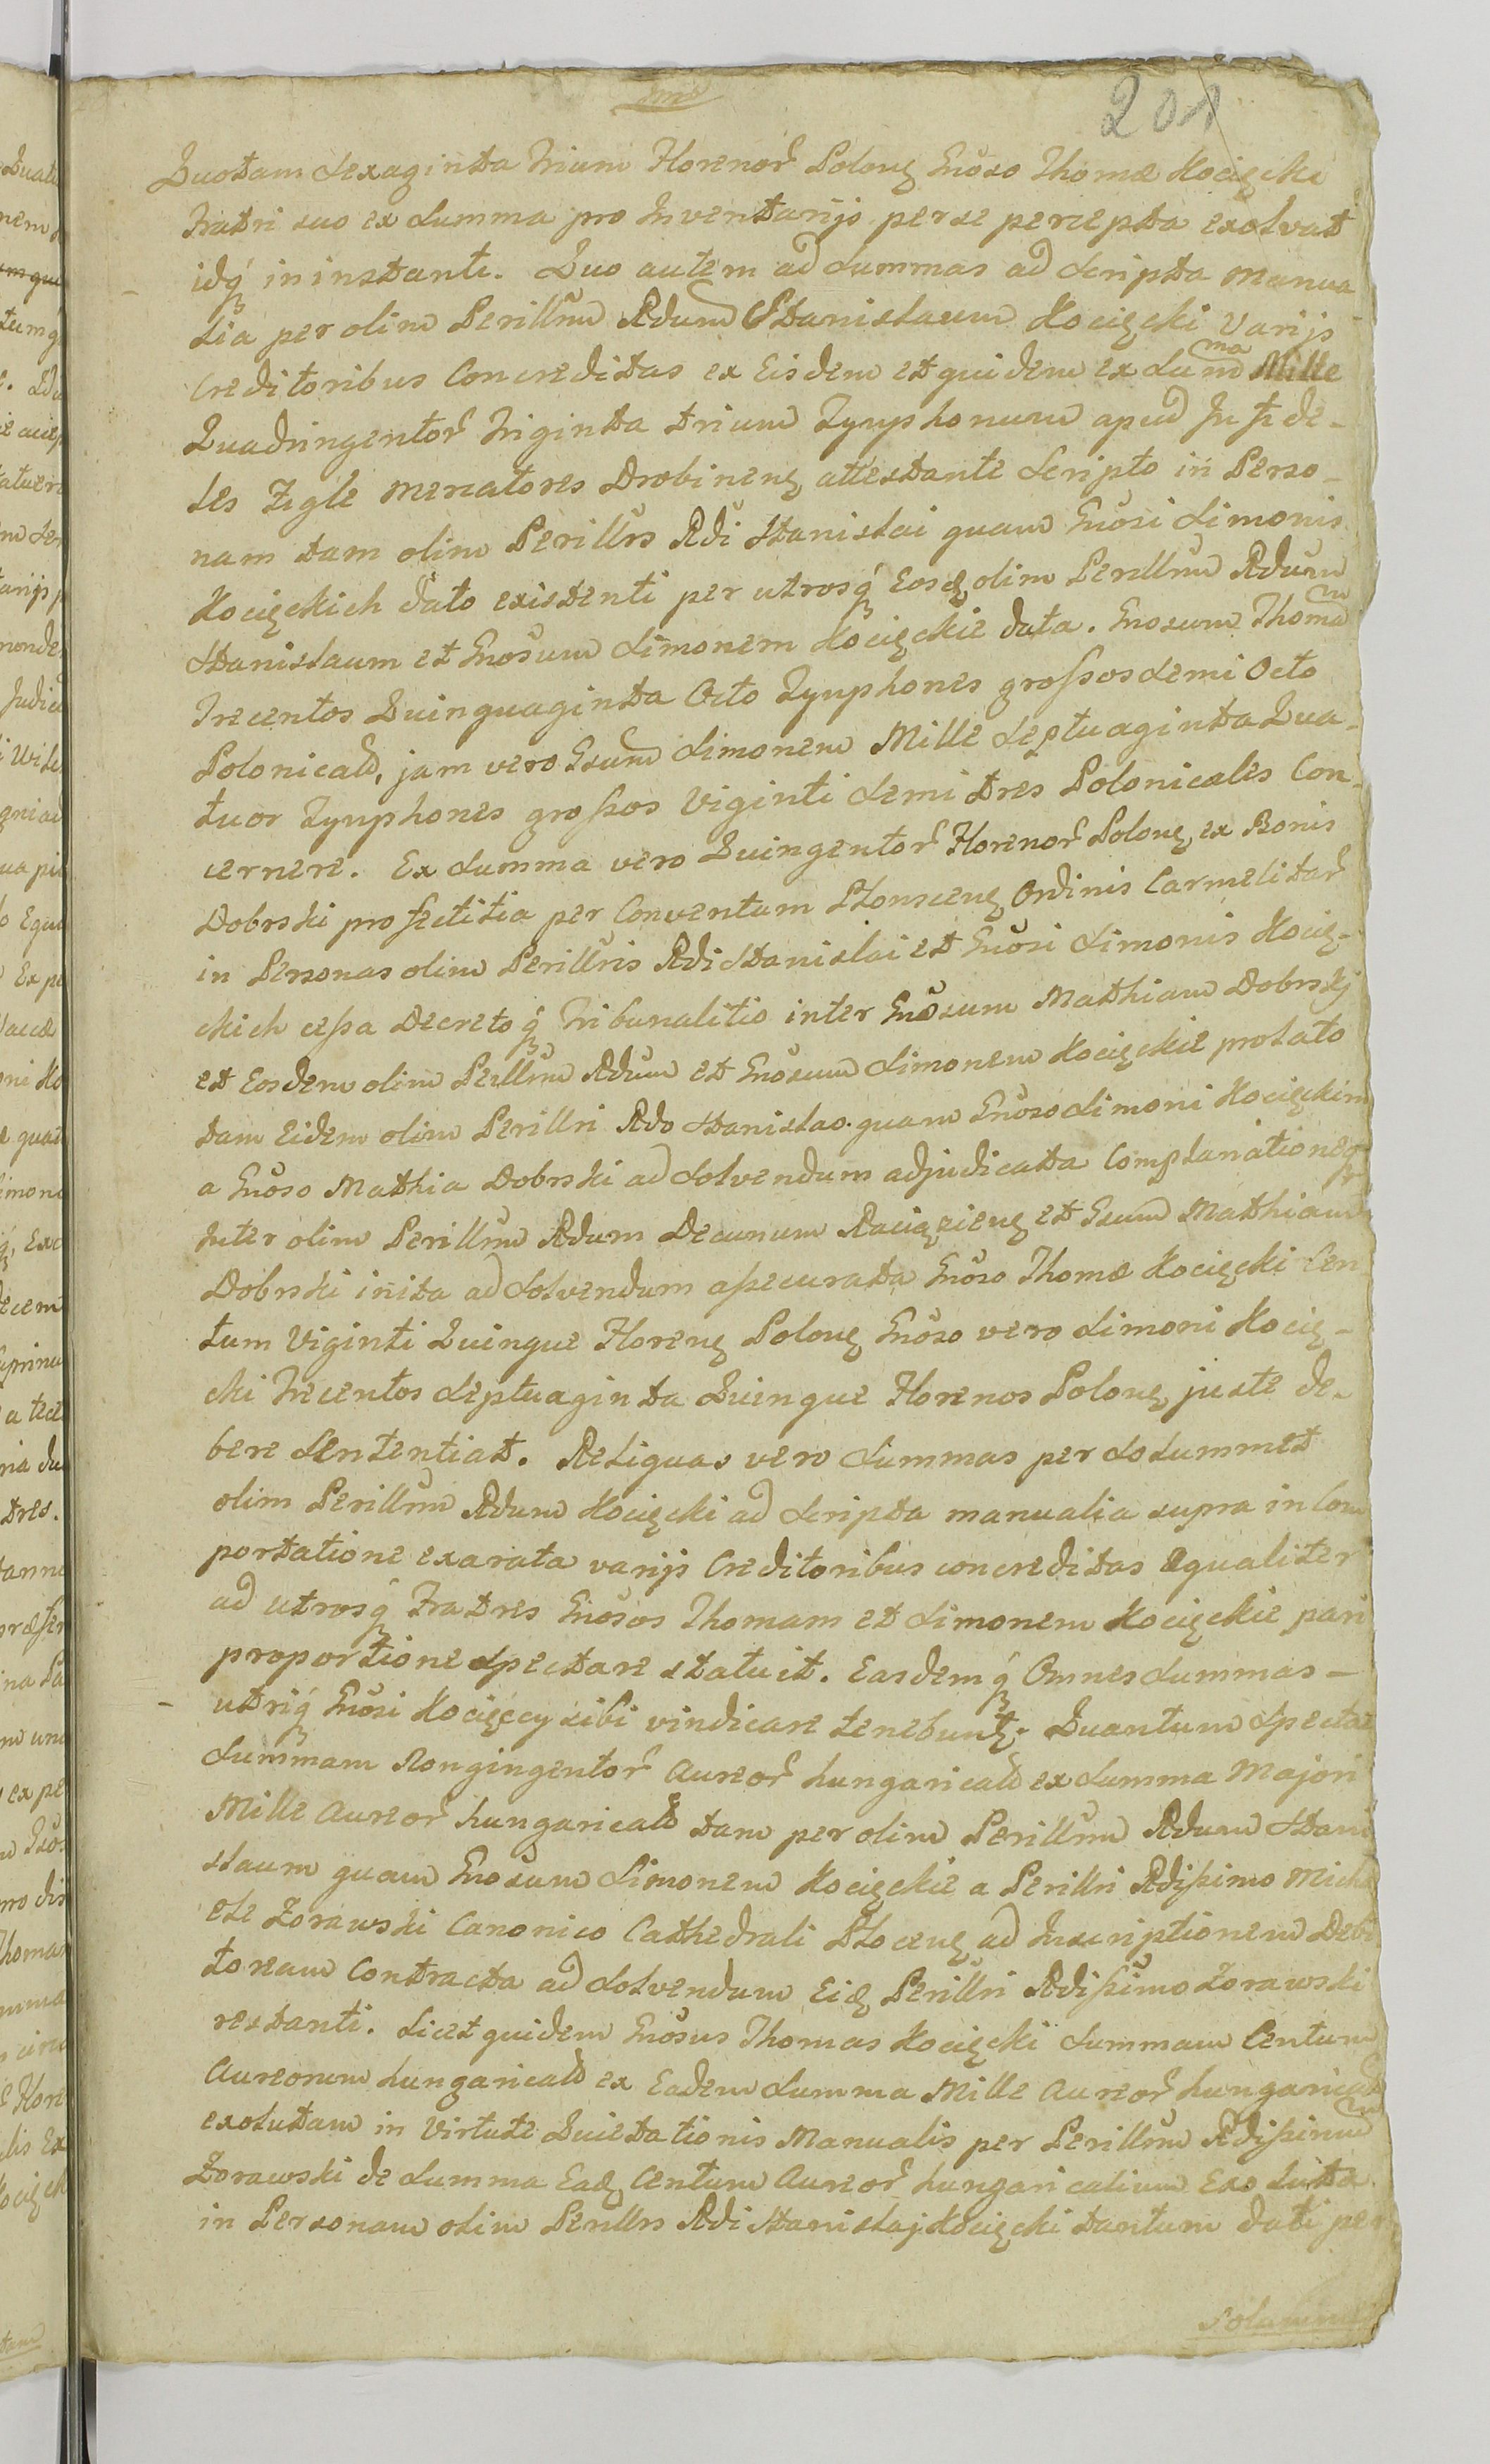 201
Quotam Sexaginta Trium Florenor Polong Gnoso Thomæ Kocięcki
Fratri suo ex Summa pro Inventarijs per se percepta exolvat
idq in instanti. Quo autem ad Summas ad Scripta Manua
lia per olim Perillrm Rdum Stanislaum Kocięcki Varijs
Creditoribus Concreditas ex Eisdem et quidem ex Sumã Mille
Quadringentor Triginta trium Tynphonum apud Infide-
les Zigle Mercatores Drobineng attestante Scripto in Perso-
nam tam olim Perillrs Rdi Stanislai quam Gnosi Simonis
Kocięckich dato existenti per utrosq Eosd olim Perillrm Rdum
Stanislaum et Gnosum Simonem Kocięckie data. Gnosum Thomam
Trecentos Quinquaginta Octo Tynphones grossos Semi Octo
Polonicald, jam vero Gsum Simonem Mille Septuaginta Qua-
tuor Tynphones grossos Viginti Semi tres Polonicales Con-
cernere. Ex Summa vero Quingentor Florenor Polong ex Bonis
Dobrski profectitia per Conventum Plonsceng Ordinis Carmelitar
in Personas olim Perillris Rdi Stanislai et Gnosi Simonis Kocię-
ckich cessa Decretoq Tribunalitio inter Gnosum Mathiam Dobrskj
et Eosdem olim Perllrm Rdum et Gnosum Simonem Kocięckie prolato
tam Eidem olim Perillri Rdo Stanislao quam Gnoso Simoni Kocięckim
a Gnoso Mathia Dobrski ad Solvendum adjudicata Complanationeq
Inter olim Perillrm Rdum Decanum Raciązieng et Gsum Mathiam
Dobrski inita ad Solvendum assecurata Gnoso Thomæ Kocięcki Cen
tum Viginti Quinque Floreng Polong Gnoso vero Simoni Kocię-
cki Trecentos Septuaginta Quinque Florenos Polong juste de-
bere Sententiat. Reliquas vero Summas per Solummet
olim Perillrm Rdum Kocięcki ad Scripta manualia supra in Com
portatione exarata varijs Creditoribus concreditas Equaliter
ad utrosq Fratres Gnosos Thomam et Simonem Kocięckie pari
proportione Spectare statuit. Easdemq Omnes Summas -
utriq Gnosi Kocięccy sibi vindicare tenebunt. Quantum Spectat
Summam Nongingentor Aureor hungaricald ex Summa Majori
Mille Aureor hungaricald tam per olim Perillrm Rdum Stani
slaum quam Gnosum Simonem Kocięckie a Perillri Rdissimo Micha
ele Zorawski Canonico Cathedrali Ploceng ad Inscriptionem Debi
toream Contracta ad Solvendum Eid Perillri Rdissimo Zorawski
restanti. Licet quidem Gnosus Thomas Kocięcki Summam Centum
Aureorum hungaricald ex Eadem Summa Mille Aureor hungaricald
exolutam in Virtute Quietationis Manualis per Perillrm Rdissimum
Zorawski de Summa Ead Centum Aureor hungaricalium Exoluta
in Personam olim Perillrs Rdi Stanislaj Kocięcki tantum dati per
Solummet